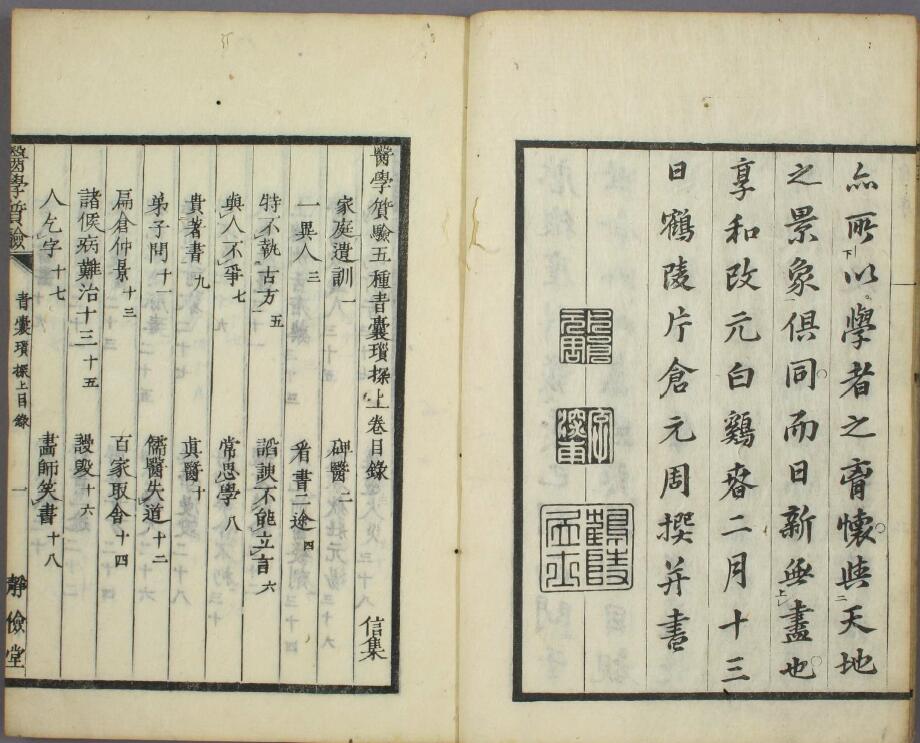 亦所以學者之育懷與天地
之景象俱同而日新無盡也
享和改元白鷄春二月十三
日鶴陵片倉元周撰并書
鶴陵
醫學質驗五種青囊瑣探上卷目錄 信集
家庭遺訓一 碑醫二
一異人三 看書二途四
特不執古方五 諂諛不能立言六
與人不爭七 常思學八
貴著書九 真醫十
弟子問十一 儒醫失道十二
扁倉仲景十三 百家取舍十四
諸候病難治十三十五 毀十六
人乞字十七 畫師笑書十八
醫學質驗 青囊瑣探上目錄 一 靜儉堂